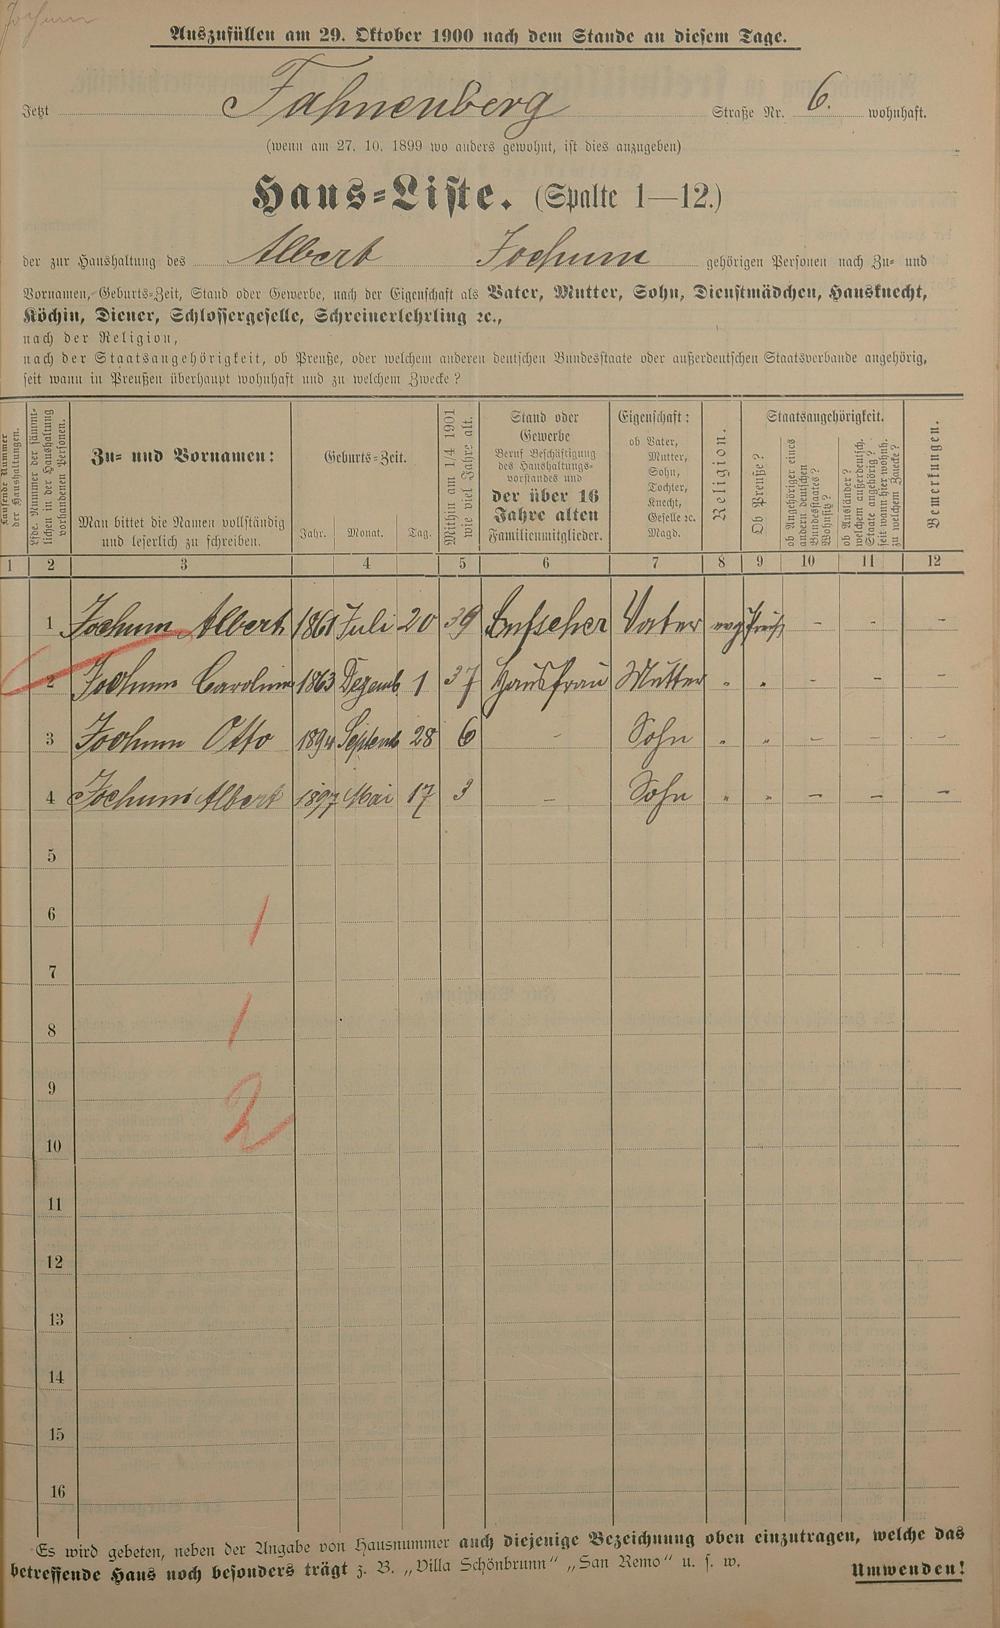 Jochum
Auszufüllen am 29. Oktober 1900 nach dem Stande an diesem Tage.
Jetzt Fahnenberg Straße Nr. 6. wohnhaft.
(wenn am 27. 10. 1899 wo anders gewohnt, ist dies anzugeben)
Haus-Liste. (Spalte 1—12.)
der zur Haushaltung des Albert Jochum gehörigen Personen nach Zu- und
Vornamen, Geburts-Zeit, Stand oder Gewerbe, nach der Eigenschaft als Vater, Mutter, Sohn, Dienstmädchen, Hausknecht,
Köchin, Diener, Schlossergeselle, Schreinerlehrling ꝛc.,
nach der Religion,
nach der Staatsangehörigkeit, ob Preuße, oder welchem anderen deutschen Bundesstaate oder außerdeutschen Staatsverbande angehörig,
seit wann in Preußen überhaupt wohnhaft und zu welchem Zwecke?
Laufende Nummer
der Haushaltungen.
Lfde. Nummer der sämmt-
lichen in der Haushaltung
vorhandenen Personen.
Zu- und Vornamen:
Man bittet die Namen vollständig
und leserlich zu schreiben.
Geburts-Zeit.
Jahr. Monat. Tag.
Mithin am 1/4 1901
wie viel Jahre alt.
Stand oder
Gewerbe
Beruf Beschäftigung
des Haushaltungs-
vorstandes und
der über 16
Jahre alten
Familienmitglieder.
Eigenschaft:
ob Vater,
Mutter,
Sohn,
Tochter,
Knecht,
Geselle ꝛc.
Magd.
Religion.
Staatsangehörigkeit.
Ob Preuße?
ob Angehöriger eines
andern deutschen
Bundesstaates?
Wohnsitz?
ob Ausländer?
welchem außerdeutsch.
Staate angehörig?
seit wann hier wohnh.
zu welchem Zwecke?
Bemerkungen.
1 2 3 4 5 6 7 8 9 10 11 12
1 Jochum Albert 1861 Juli 20 39 Vater - - -
2 Jochum Caroline 1863 Dezemb 1 37 Hausfrau Mutter " " - - -
3 Jochum Otto 1894 Septemb 28 6 - Sohn " " - - -
4 Jochum Albert 1897 Mai 17 3 - Sohn " " - - -
5
6 1
7
8 1
9
10 2
11
12
13
14
15
16
Es wird gebeten, neben der Angabe von Hausnummer auch diejenige Bezeichnung oben einzutragen, welche das
betreffende Haus noch besonders trägt z. B. „Villa Schönbrunn" „San Remo" u. s. w. Umwenden!